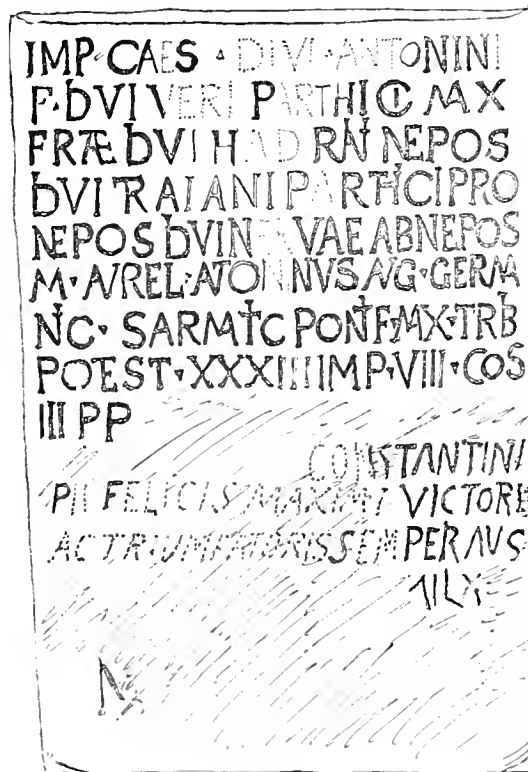 IMP·CAES · DIVI·ANTONINI
F·DIVI VERI PARTHICI MAX
FRATE DIVI HADRIANI NEPOS
DIVI TRAIANI PARTHICI PRO
NEPOS DIVI NERVAE ABNEPOS
M·AVREL·ANTONINVS AVG·GERM
ANIC·SARMATIC PONTIF·MAX·TRIB
POEST·XXXIIII IMP·VIII·COS
III PP
CONSTANTINI
PII FELICIS MAXIMI VICTORI
AC TRIUMFATORIS SEMPER AVS